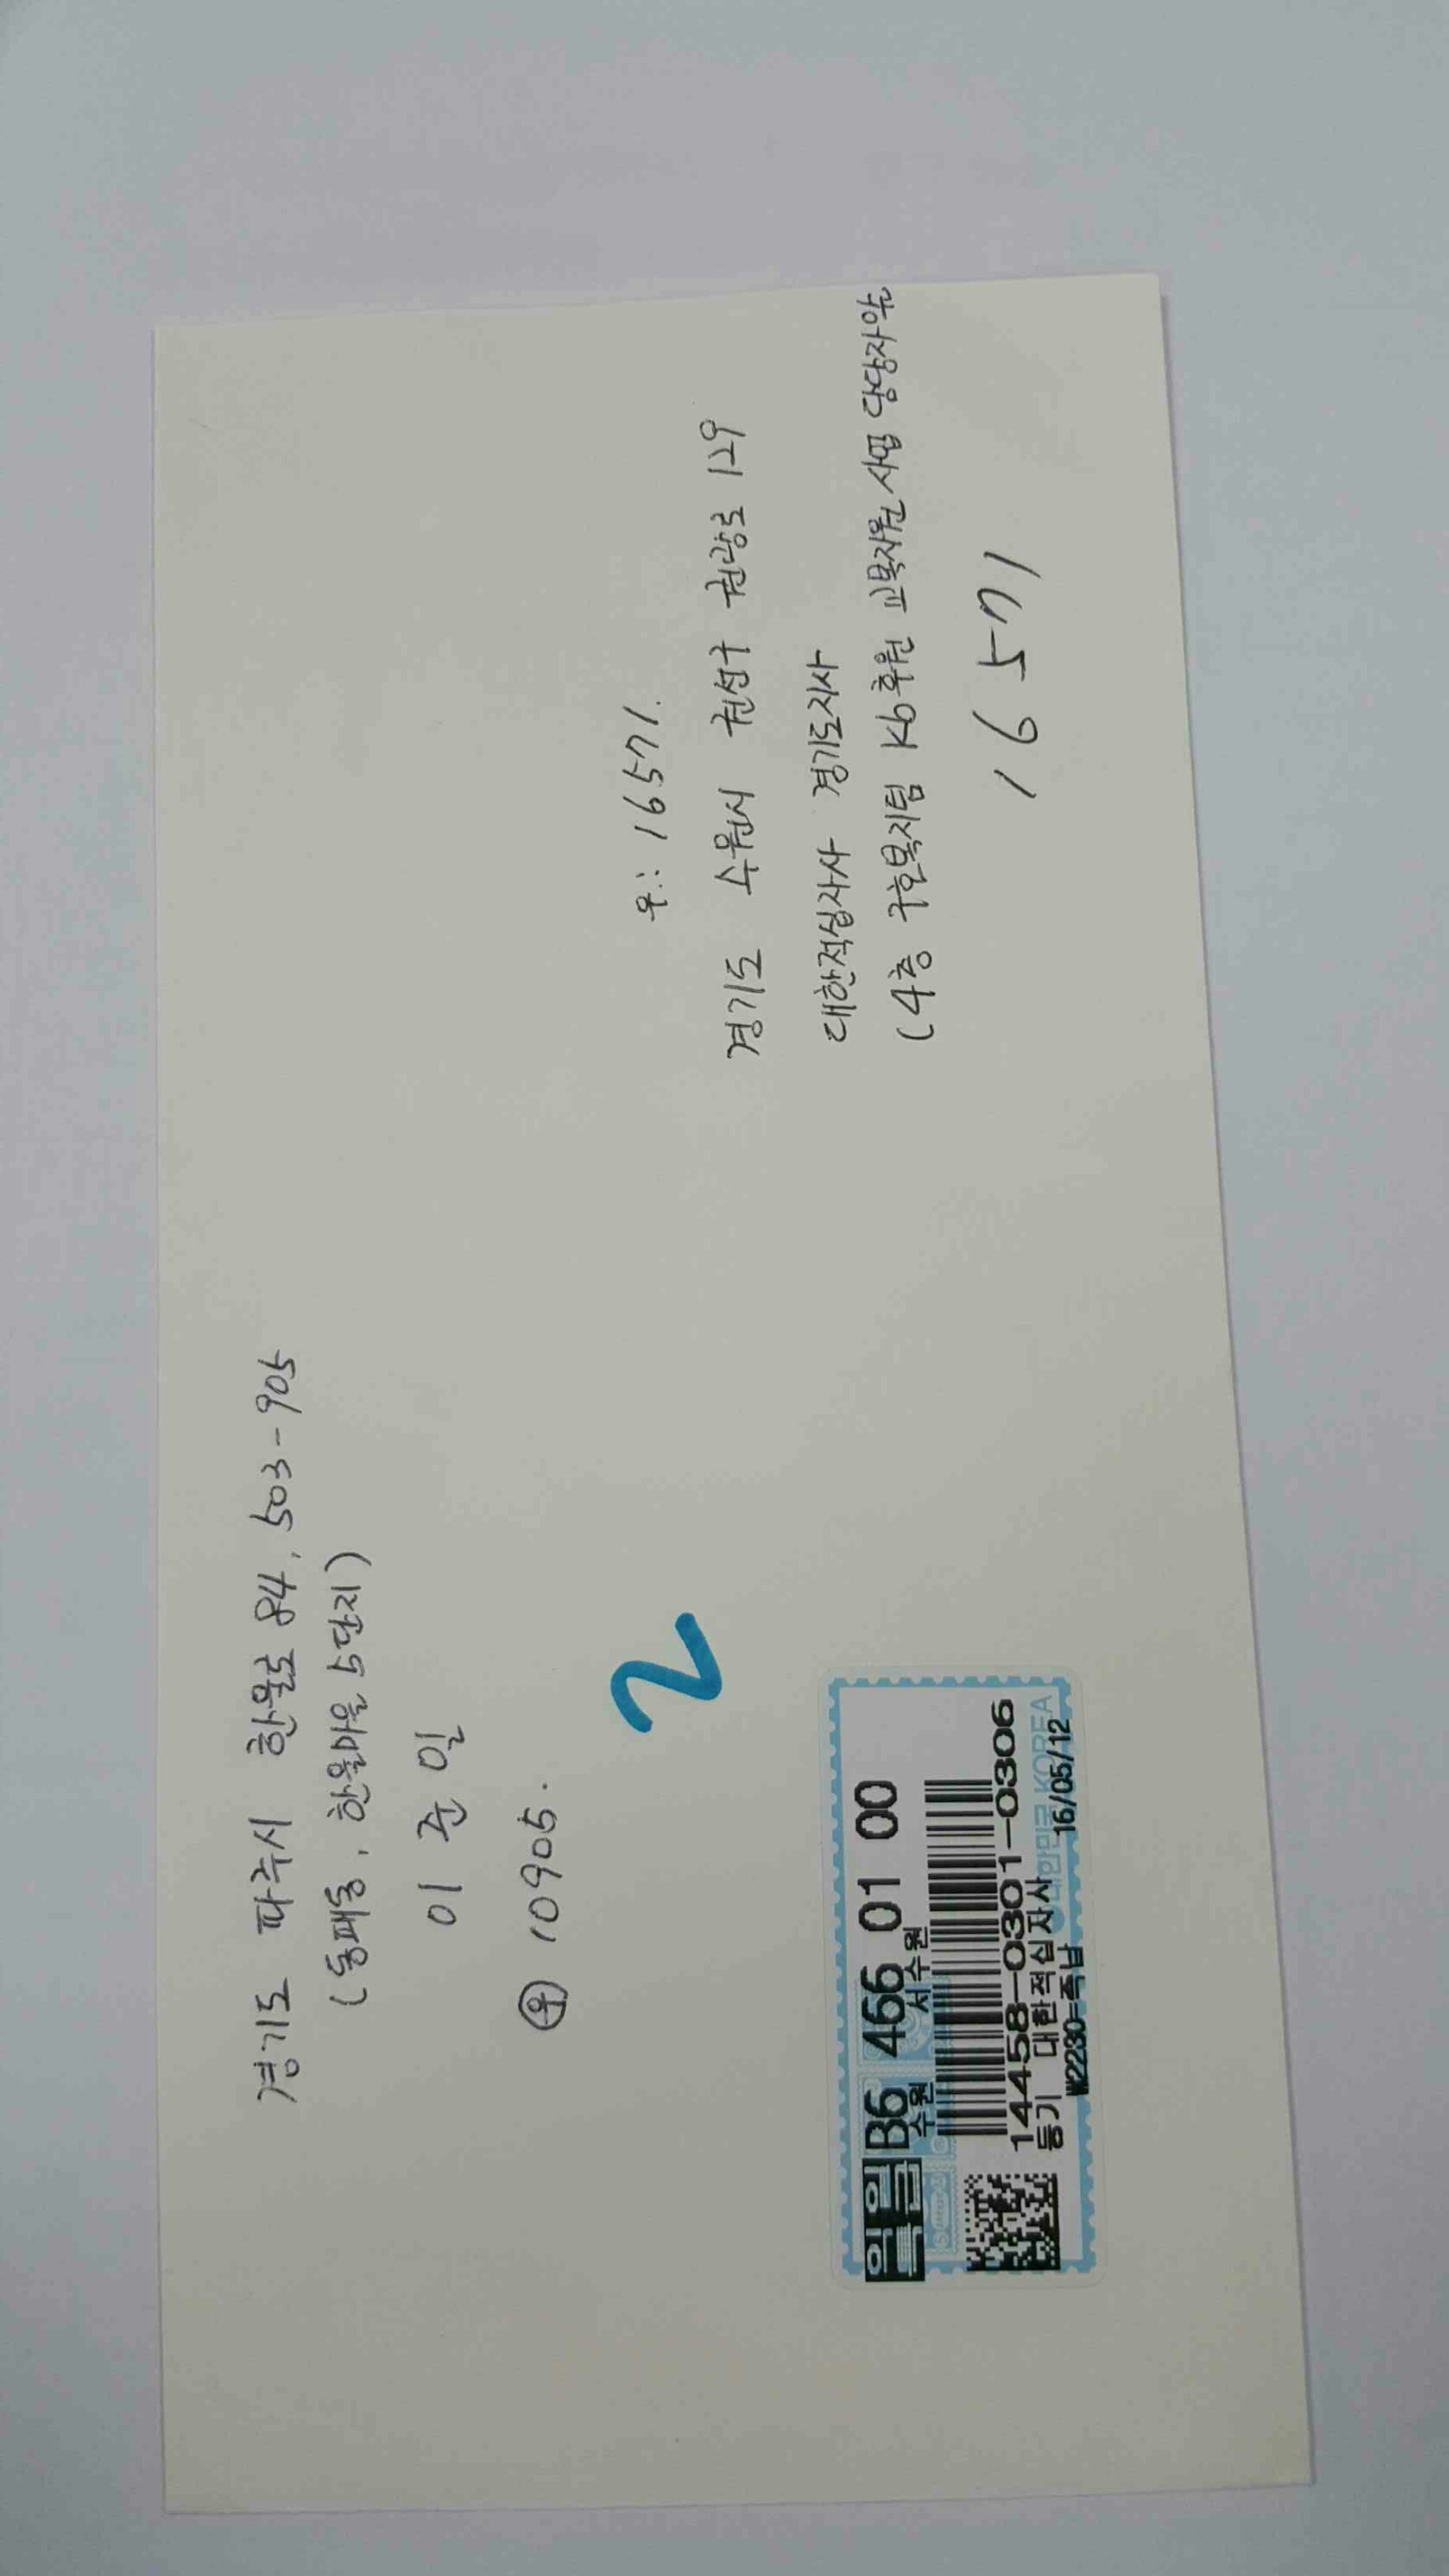 경기도 파주시 한울로 84, 503-905
(동패동, 한울마을 5단지)
이 준 일
우 10905.
2
우: 16571.
경기도 수원시 권선구 권광로 129
대한적십자사 경기도지사
(4층 구호복지팀 Kb후원 교복지원사업 담당자앞
16571
익일 B6 466 01 00
특급 수원 서수원
14458-0301-0306
등기 대한적십자사 대한민국 KOREA
₩2230=즉납 16/05/12